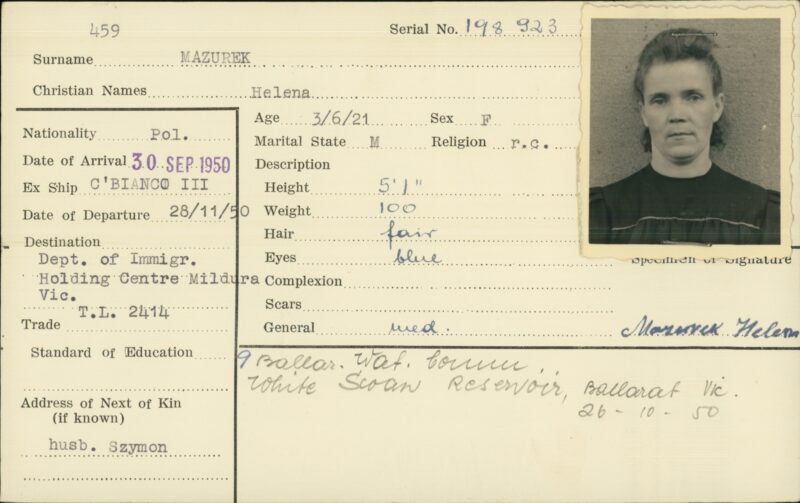 459
Serial No. 198 923
Surname MAZUREK
Christian Names Helena
Nationality Pol.
Date of Arrival 30 SEP 1950
Ex Ship C'BIANCO III
Date of Departure 28/11/50
Destination
Dept. of Immigr.
Holding Centre Mildura
Vic.
T.L. 2414
Trade
Standard of Education
Address of Next of Kin
(if known)
husb. Szymon
Age 3/6/21 Sex F
Marital State M Religion r.c.
Description
Height 5'1"
Weight 100
Hair fair
Eyes blue
Complexion
Scars
General med.
Specimen of Signature
Mazurek Helena
Ballar. Wat. Comm.
White Swan Reservoir, Ballarat Vic.
26-10-50